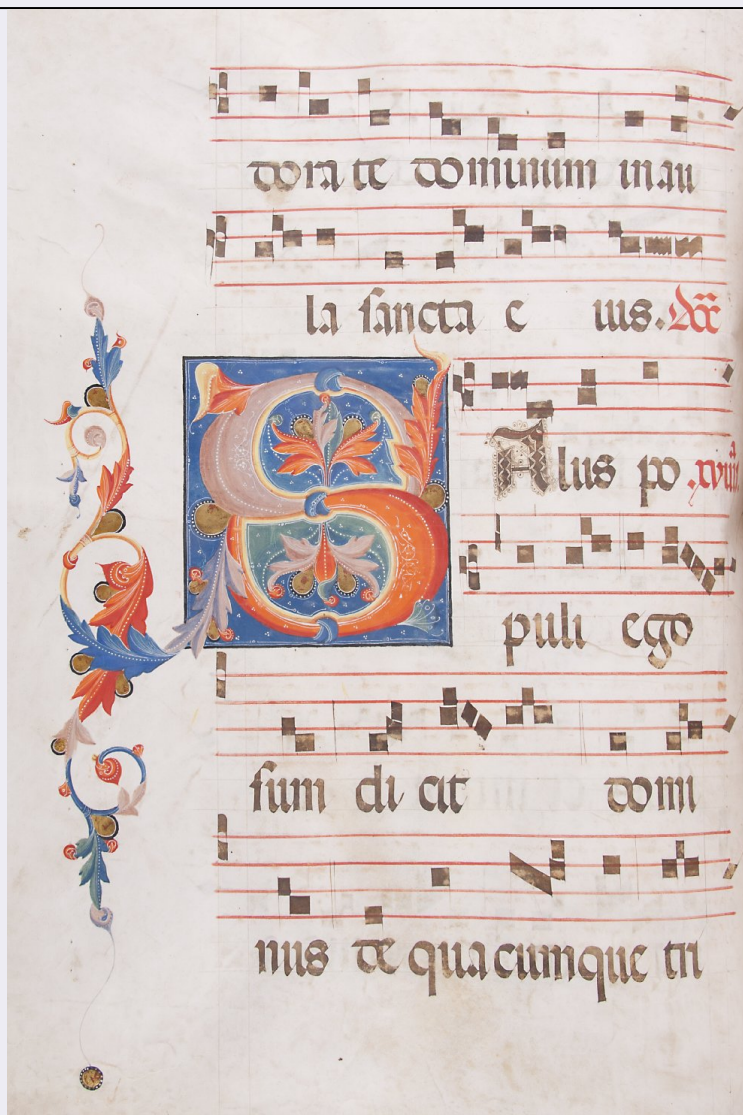 dorate dominum in au
la sancta e ius.
SAlus po
puli ego
sum dicit domi
nus de quacumque tri